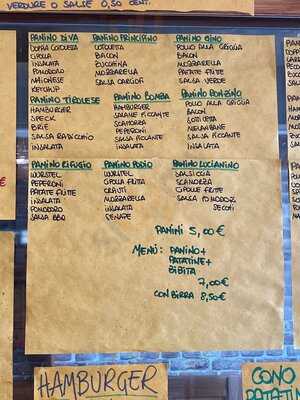 VERDURE O SALSE 0,50 CENT.
PANINO DIVA
DOPPIA COTOLETTA
CIPOLLA
INSALATA
POMODORO
MAIONESE
KETCHUP
PANINO PRINCIPINO
COTOLETTA
BACON
ZUCCHINA
MOZZARELLA
SALSA CARCIOFI
PANINO GINO
POLLO ALLA GRIGLIA
BACON
MOZZARELLA
PATATE FRITTE
SALSA VERDE
PANINO TIROLESE
HAMBURGER
SPECK
BRIE
SALSA RADICCHIO
INSALATA
PANINO BOMBA
HAMBURGER
SALAME PICCANTE
SCAMORZA
PEPERONI
SALSA PICCANTE
INSALATA
PANINO BONZINO
POLLO ALLA GRIGLIA
BACON
COTOLETTA
MELANZANE
SALSA PICCANTE
INSALATA
PANINO RIFUGIO
WURSTEL
PEPERONI
PATATE FRITTE
INSALATA
POMODORO
SALSA BBQ
PANINO PODIO
WURSTEL
CIPOLLA FRITTA
CRAUTI
MOZZARELLA
INSALATA
SENAPE
PANINO LUCIANINO
SALSICCIA
SCAMORZA
CIPOLLE FRITTE
SALSA POMODORI
SECCHI
PANINI 5,00 €
MENÙ: PANINO+
PATATINE+
BIBITA
7,00€
CON BIRRA 8,50€
HAMBURGER
CONO
PATATIN